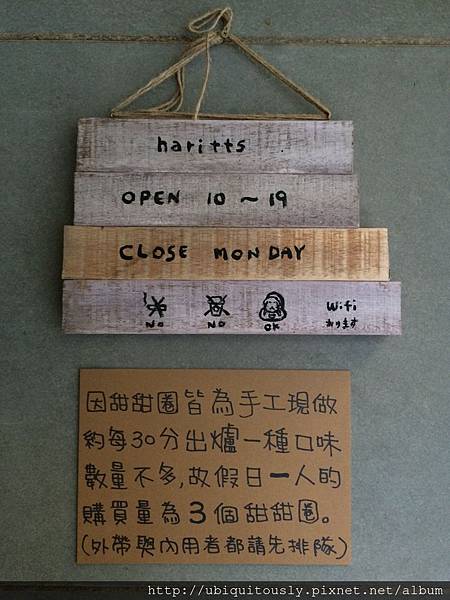 haritts
OPEN 10〜19
CLOSE MONDAY
NO NO OK Wifi
あります
因甜甜圈皆為手工現做
約每30分出爐一種口味
數量不多,故假日一人的
購買量為3個甜甜圈。
(外帶與內用者都請先排隊)
http://ubiquitously.pixnet.net/album